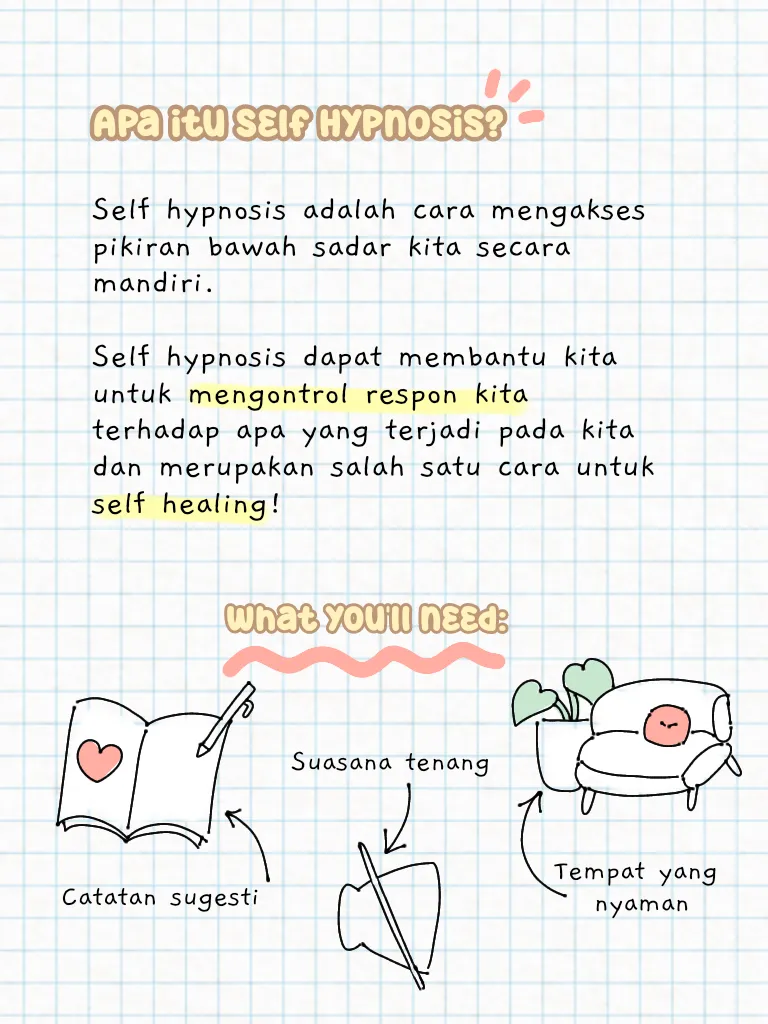 Apa itu Self Hypnosis?
Self hypnosis adalah cara mengakses
pikiran bawah sadar kita secara
mandiri.
Self hypnosis dapat membantu kita
untuk mengontrol respon kita
terhadap apa yang terjadi pada kita
dan merupakan salah satu cara untuk
self healing!
What you'll need:
Suasana tenang
Catatan sugesti
Tempat yang
nyaman